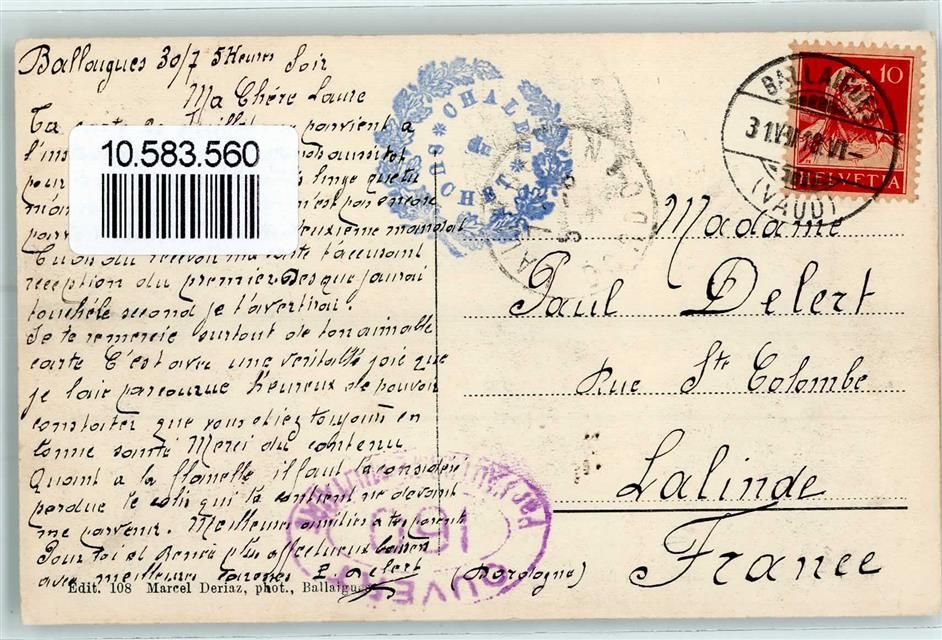 Ballaigues 30/7 5 Heures Soir
Ma Chère Laure
Ta carte parvient a
10.583.560
pour linge que tu
n'est pas encore
deuxième mandat
recevoir ma carte t'accusant
reception du premier Des que j'aurai
touché le second je t'avertirai.
Je te remercie surtout de ton aimable
carte C'est avec une veritable joie que
je l'aie parcourue heureux de pouvoir
constater que vous etiez toujours en
bonne santé Merci du contenu
Quant a la flanelle il faut la considérer
perdue le colis qui la contient ne devant
me parvenir. Meilleures amitiés a tes parents
Pour toi et plus affectueux baisers
avec meilleures caresses P. Delert
CHALET du SUCHET
HELVETIA 10
BALLAIGUES
31.VII.18.VI-
(VAUD)
Madame
Paul Delert
Rue Ste Colombe
Lalinde
France
(Dordogne)
OUVERT
PAR L'AUTORITÉ MILITAIRE
Edit. 108 Marcel Deriaz, phot., Ballaigues